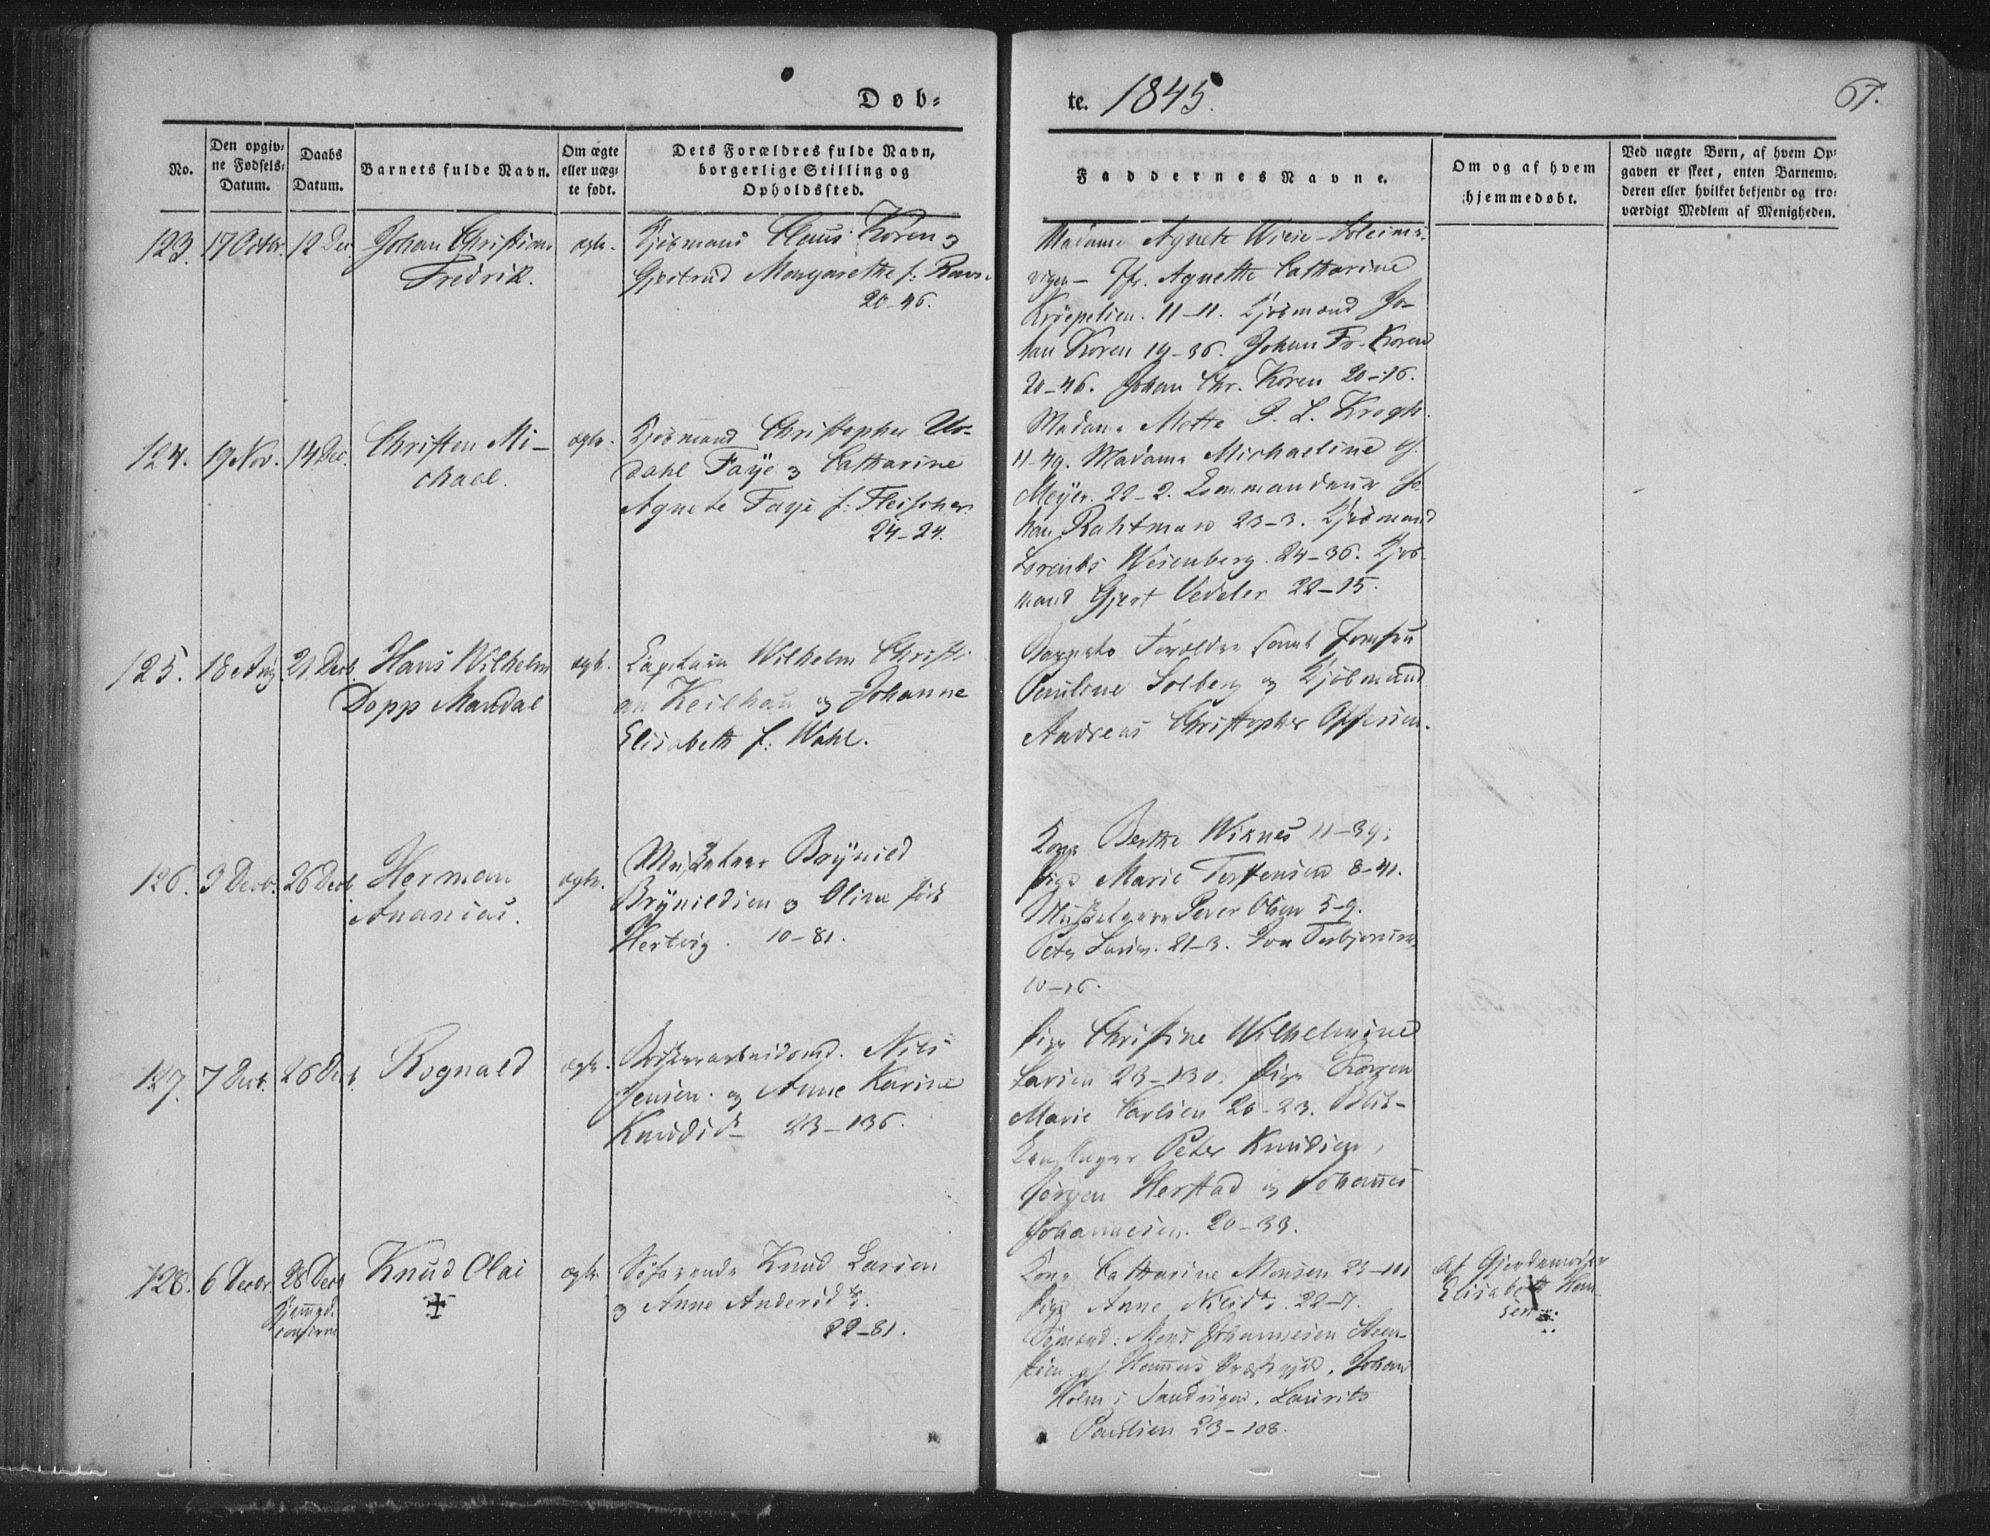 Døb-
te. 1845.
67.
No.
Den opgiv-
ne Fødsels-
Datum.
Daabs
Datum.
Barnets fulde Navn.
Om ægte
eller uæg-
te født.
Dets Forældres fulde Navn,
borgerlige Stilling og
Opholdssted.
Faddernes Navne.
Om og af hvem
hjemmedøbt.
Ved uægte Børn, af hvem Op-
gaven er skeet, enten Barnemo-
deren eller hvilket bekjendt og tro-
værdigt Medlem af Menigheden.
123. 17 Octbr. 12 Dec. Johan Christian
Fredrik.
ægte.
Kjøbmand Claus Koren &
Gjertrud Margarethe f:
20-46.
Madame Agnete Wiese
vigen - Jfr. Agnette Catharine
Krøepelien. 11-11. Kjøbmand Jo-
han Koren 19-36. Johan Fr. Koren
20-46. Johan Chr. Koren 20-16.
124. 19 Nov. 14 Dec. Christen Mi-
chael.
ægte.
Kjøbmand Christopher Us-
dahl Faÿe & Catharine
Agnete Faye f: Fleischer
24-24.
Madame Mette L. Krogh.
11-49. Madame Michaeline G.
Meÿer. 22-2. Commandeur Jo-
han Rahtmann 23-3. Kjøbmand
Lorents Wesenberg. 24-36. Kjøb-
mand Gjert Vedeler 22-15.
125. 18 Aug. 21 Decb. Hans Wilhelm
Dopp Mandal
ægte.
Captain Wilhelm Christi-
an Keilhau og Johanne
Elisabeth f. Wahl.
Barnets Forældre samt Jomfru
Pauline Solberg og Kjøbmand
Andreas Christopher
126. 3 Decb. 26 Decb. Herman
Ananias.
ægte.
Musketeer Brÿnild
Brÿnildsen & Oline født
Hertvig. 10-81.
Kone Berthe Wiknes 11-39;
Pige Marie Torstensen 8-41.
Musketeer Peder Olsen 5-9.
Peter Larsen. 21-3. Jon
10-16.
127. 7 Decb. 26 Decb. Rognald
ægte.
Nils
Jensen. og Anne Karine
Knudsd. 23-136.
Pige Christine Wilhelmine
Larsen 23-130. Pige Karen
Marie Carlsen 20-23. Blik-
kenslager Peter Knudsen,
Jørgen Herstad og Johannes
Johannesen. 20-33.
128. 6 Decbr. 28 Decb
Hjemmed.
Knud Olai
✝
ægte
Søfarende Knud Larsen
& Anne Andersd.
22-81.
Kone Catharine Monsen 23-101
Pige Anne Nilsd. 22-7.
Mons Johannesen
af Hammers Præstegjeld. Johan
Holm i Sandvigen. Laurits
Paulsen 23-108.
af Gjordemoder
Elisabeth Han-
sen